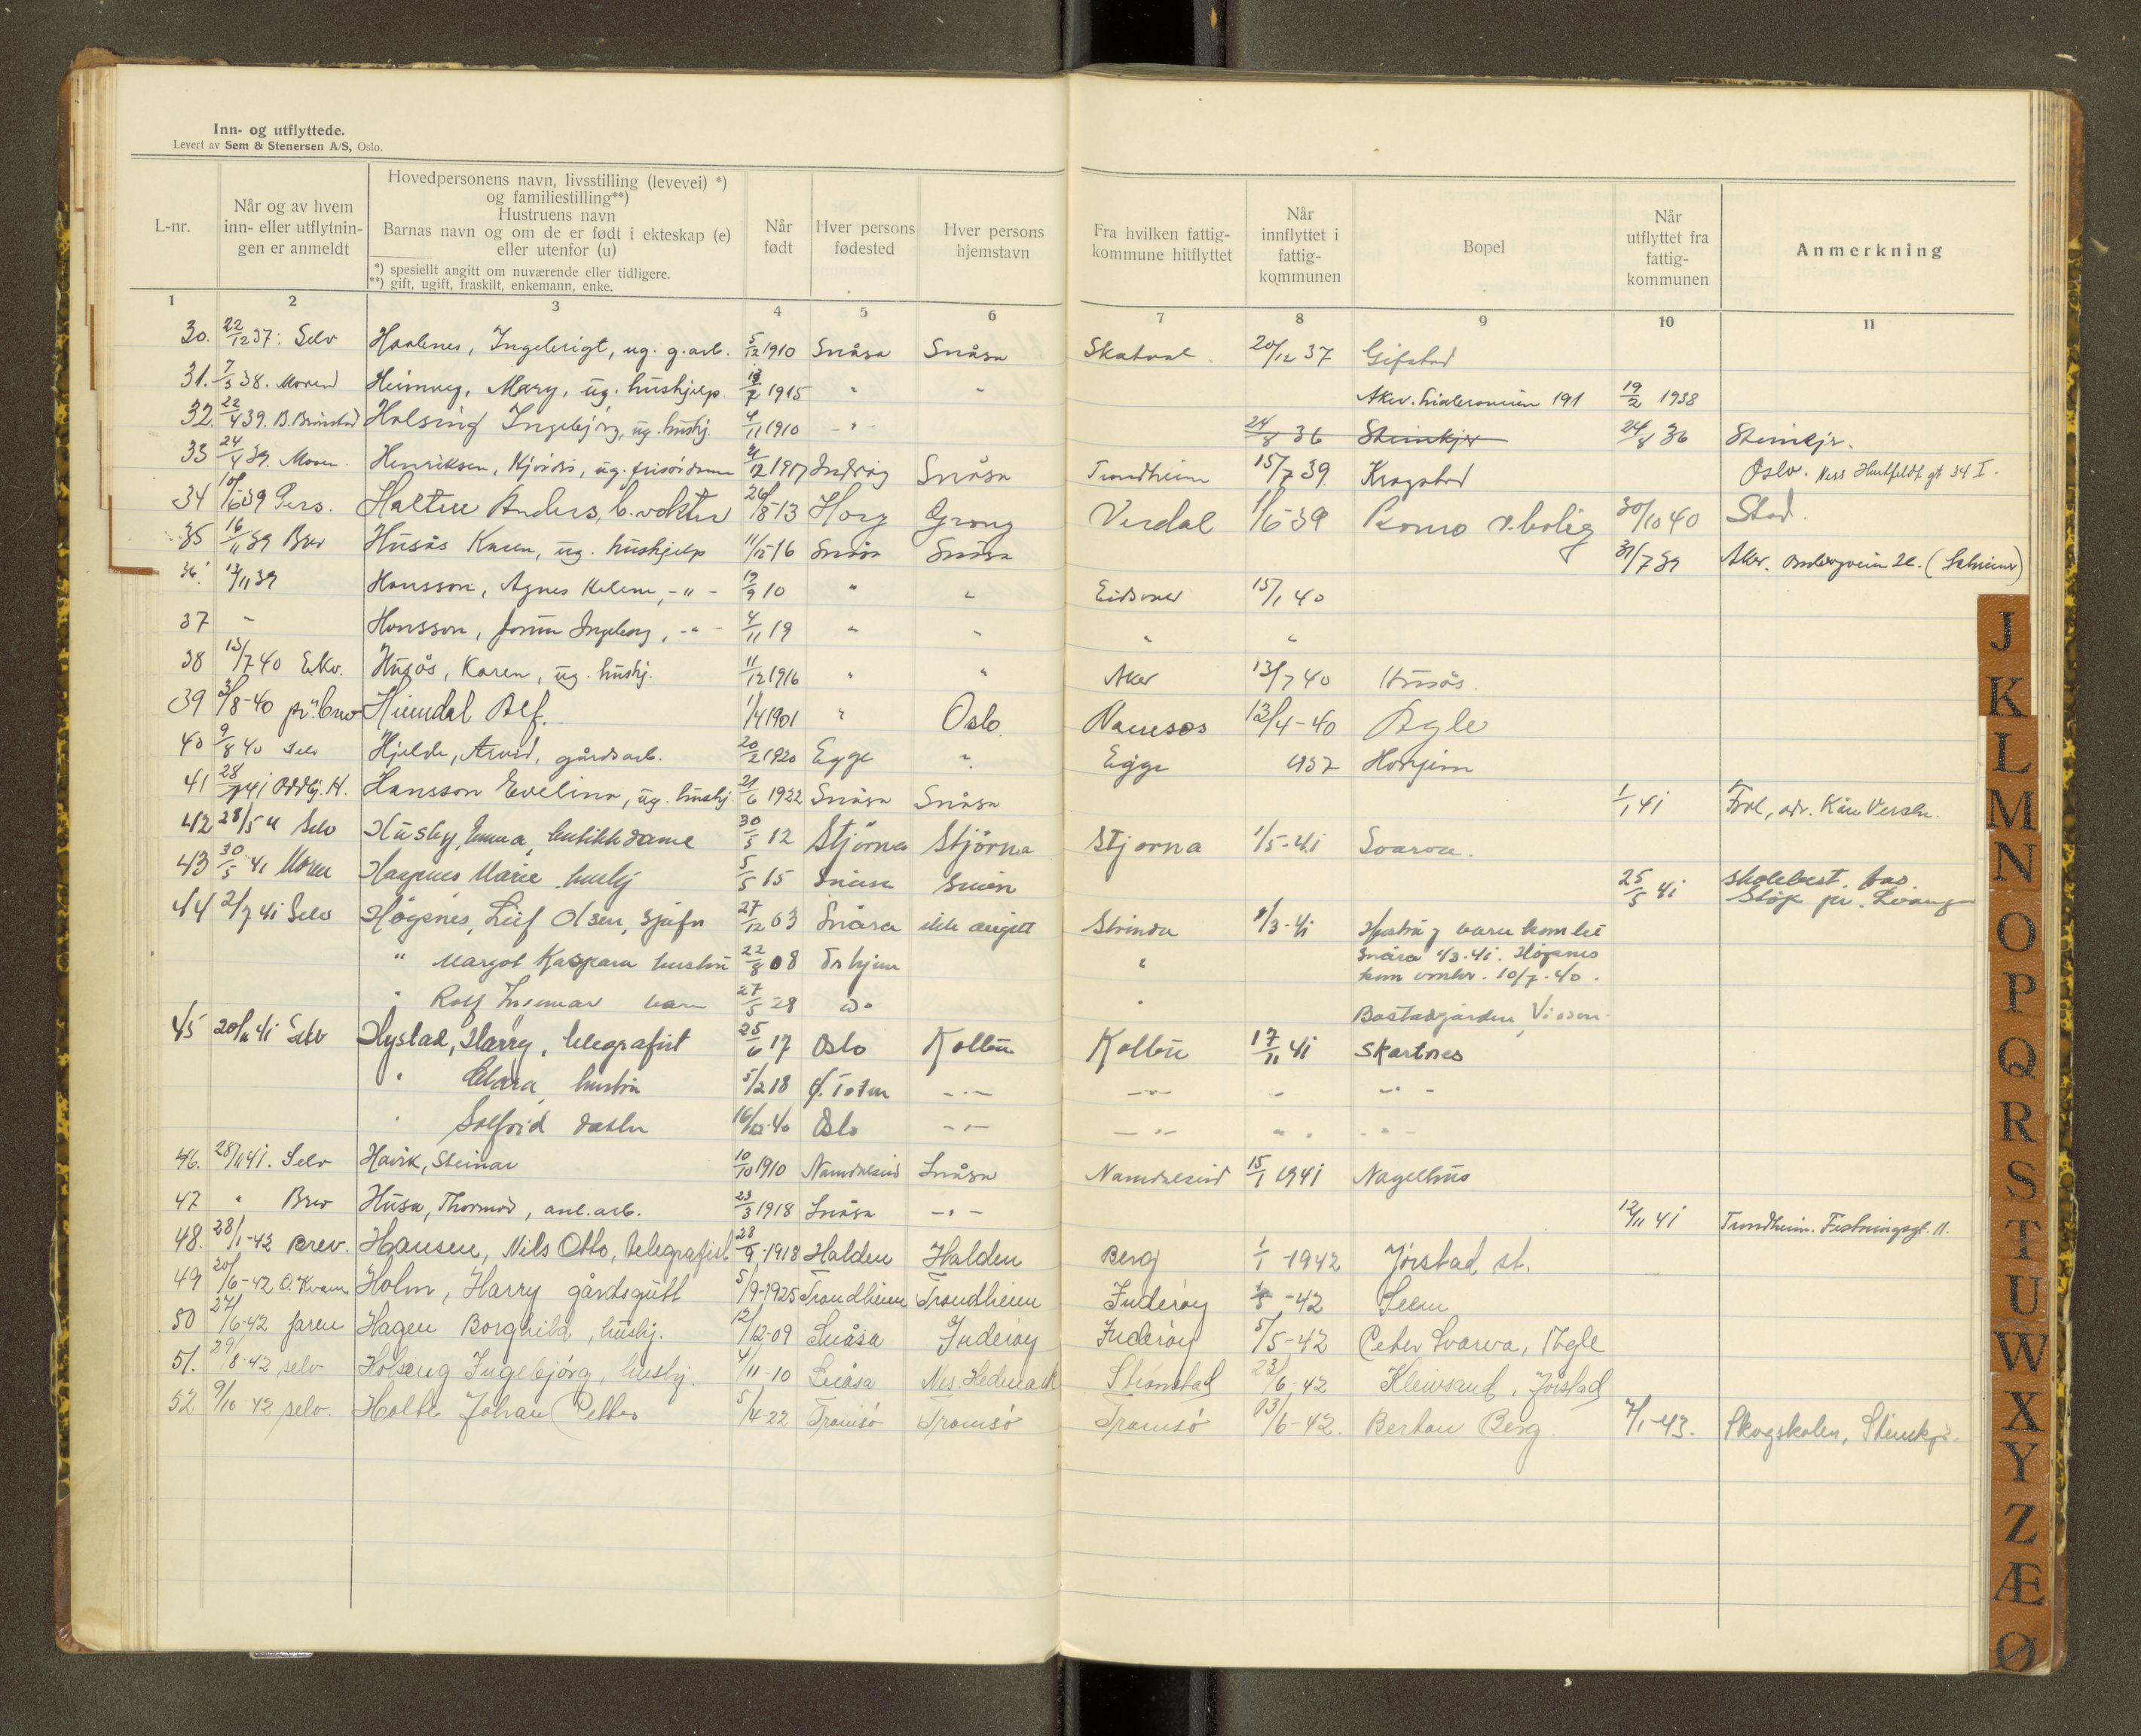 Inn- og utflyttede.
Levert av Sem & Stenersen A/S, Oslo.
L-nr.
Når og av hvem inn- eller utflytnin-gen er anmeldt
Hovedpersonens navn, livsstilling (levevei) *)
og familiestilling**)
Hustruens navn
Barnas navn og om de er født i ekteskap (e)
eller utenfor (u)
*) spesielt angitt om nuværende eller tidligere.
**) gift, ugift, fraskilt, enkemann, enke.
Når født
Hver persons fødested
Hver persons hjemstavn
Fra hvilken fattig-kommune hitflyttet
Når innflyttet i fattig-kommunen
Bopel
Når utflyttet fra fattig-kommunen
Anmerkning
1 2 3 4 5 6 7 8 9 10 11
30. 22/12 37: Selv Ingebrigt, ug. g.arb. 5/12 1910 Snåsa Snåsa Skatval 20/12 37 Gifstad
31. 7/3 38. Moren Heimveg, Mary, ug. hushjelp 1915 " " Aker. 191 19/2 1938
32. 22/4 39. Holsing Ingebjørg, ug. hushj. 4/11 1910 - " - 24/8 36 Steinkjer 24/8 36 Steinkjer.
33 24/4 39. Moren Henriksen, Kjørdis, ug. frisørdame 4/12 1917 Inderøy Snåsa Trondheim 15/7 39. Kragstad Oslo. gt 34 I.
34 39 Pers. Anders, b.vokter 26/8-13 Horg Grong Verdal 1/6-39 v.bolig 30/10 40 Stod.
35 16/11 39 Brev Husås Karen, ug. hushjelp 11/12-16 Snåsa Snåsa 31/7 39 Aker.
36. 13/11 39 Hansson, Agnes Helene, - " - 19/9 10 " " Eidsvoll 15/1 40
37 " Hansson, Jorun Ingeborg, - " - 4/11 19 " " " "
38 13/7 40 Husås, Karen, ug. hushj. 11/12 1916 " " Aker 13/7 40 Husås.
39 3/8-40 pr. brev Heimdal Alf. 1/4 1901 " Oslo. Namsos 13/4-40 Agle
40 9/8 40 Selv Hjelde, Arvid, gårdsarb. 20/2 1920 Egge " Egge 1937 Horjem
41 28/ 41 Oddbj. H. Hansson Evelina, ug. hushj 21/6 1922 Snåsa Snåsa 1/1 41 Frol, adr.
42 28/5 41 Selv Husby, Emma, butikkdame 30/5 12 Stjørna Stjørna Stjørna 1/5-41 Svarva.
43 30/5 41 Moren Hagenes Marie hushj 5/5 15 Snåsa Snåsa 25/5 41 skolebest.
pr. Levanger
44 2/7 41 Selv Høgsnes, Leif Olsen, sjåfør 27/12 03 Snåsa ikke angitt Strinda 1/3-41 Hustru og barn kom til
" Margot Kaspara hustru 22/8 08 Trhjem " Snåsa 1/3-41. Høgsnes
kom omkr. 10/7-40.
" Rolf Ingemar barn 27/5 28 do " Bostadgården, Viosen
45 20/11 41 Selv Hystad, Harry, telegrafist 25/6 17 Oslo Kolbu Kolbu 17/11 41 Skartnes
" Clara hustru 5/2 18 Ø. Toten - " - - " - - - " -
" Solfrid datter 16/10-40 Oslo - " - - " - " " - " -
46. 28/11 41. Selv Havik, Steinar 10/10 1910 Namdalseid Snåsa Namdalseid 15/1 1941 Nagelhus
47 " Brev Husa, Thormod, anl.arb. 23/3 1918 Snåsa - " - 12/11 41 Trondheim. Festningsgt. 11.
48. 28/1-42 Brev. Hansen, Nils Otto, telegrafist 28/9-1918 Halden Halden Berg 1/1-1942 Jørstad st.
49 20/6-42 O. Kvam Holm, Harry gårdsgutt 5/9-1925 Trondheim Trondheim Inderøy -42 Seem
50 27/6-42 faren Hagen Borghild, hushj. 12/12-09 Snåsa Inderøy Inderøy 5/5-42 Peter Svarva, Agle
51. 29/8-42 selv Holseng Ingebjørg, hushj. 4/11-10 Snåsa Nes. Hedmark Strømstad 23/6-42 Kleivsand, Jørstad
52 9/10-42 selv. Holte Johan Petter 5/4-22 Tromsø Tromsø Tromsø 13/6-42. Bertan Berg 7/1-43. Skogskolen, Steinkjer
J
K
L
M
N
O
P
Q
R
S
T
U
W
X
Y
Z
Æ
Ø